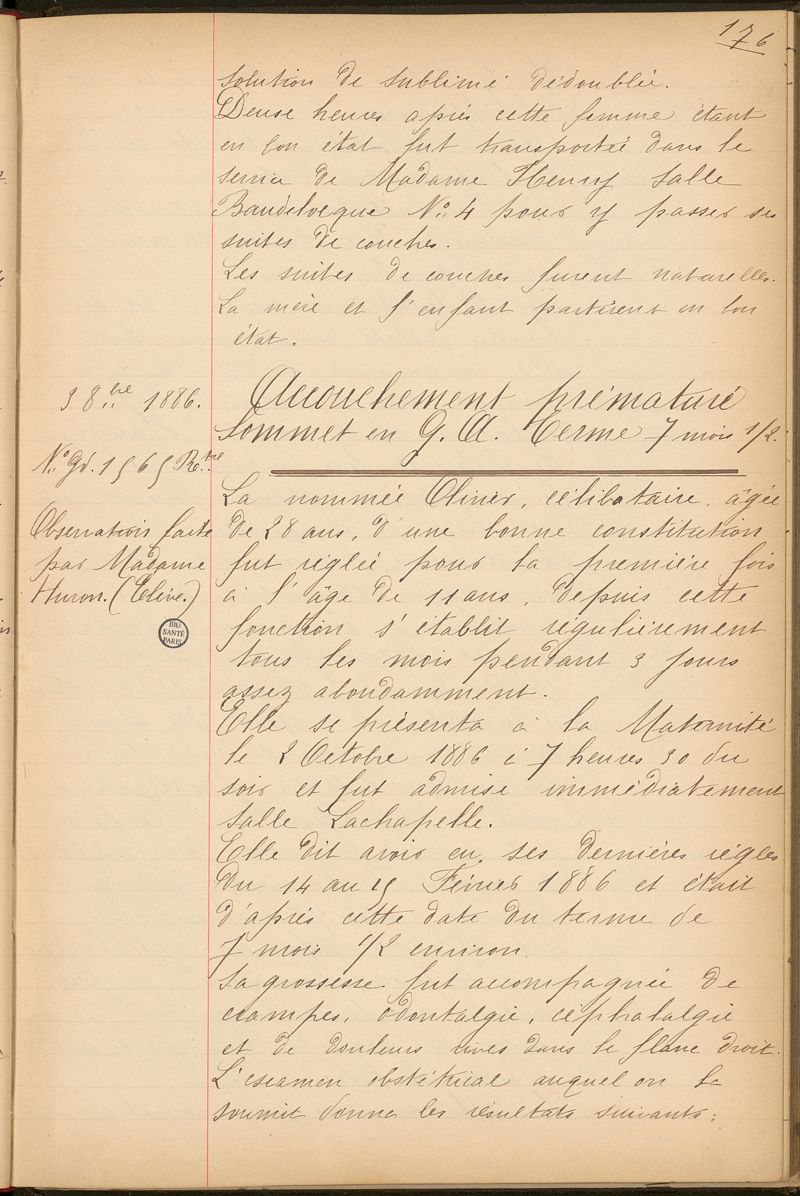 176
solution de sublimé dédoublée.
Deuse heures après cette femme étant
en bon état fut transportée dans le
service de Madame Henry salle
Baudelocque No. 4 pour y passer ses
suites de couches.
Les suites de couches furent naturelles.
La mère et l'enfant partirent en bon
état.
3 8.bre 1886.
Accouchement prématuré
Sommet en G. A. Terme 7 mois 1/2.
No. Gd. 1565 R.tre
Observation faite
par Madame
Huron. (Elève.)
BIU
SANTÉ
PARIS
La nommée Olivier, célibataire, âgée
de 28 ans, d'une bonne constitution
fut réglée pour la première fois
à l'âge de 11 ans, depuis cette
fonction s'établit régulièrement
tous les mois pendant 3 jours
assez abondamment.
Elle se présenta à la Maternité
le 2 Octobre 1886 à 7 heures 30 du
soir et fut admise immédiatement
salle Lachapelle.
Elle dit avoir eu, ses dernières règles
du 14 au 15 Février 1886 et était
d'après cette date du terme de
7 mois 1/2 environ.
Sa grossesse fut accompagnée de
crampes, odontalgie, céphalalgie
et de douleurs vives dans le flanc droit.
L'escamen obstétrical auquel on la
soumit donna les résultats suivants: